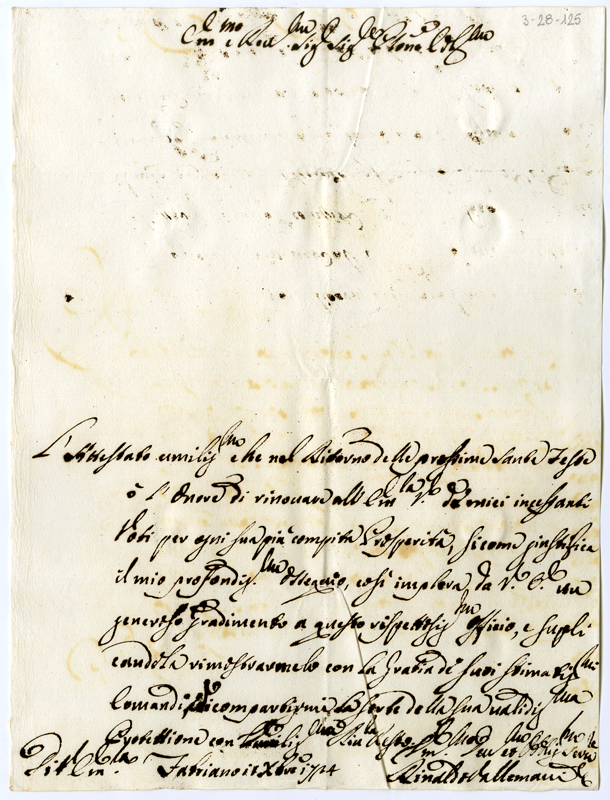 3-28-125
Em.mo e Rev.mo Sig. Sig. P.rone Col.mo
L'Attestato umiliss.mo che nel Ritorno delle prossime Sante Feste
ò l'Onore di rinovare all'Em.za V. de miei incessanti
Voti per ogni sua più compita Prosperità, sicome giustifica
il mio profondiss.mo Ossequio, così implora da V. E. un
generoso Gradimento a questo rispettosiss.mo Officio, e supli
candola rimostrarmelo con la Grazia de suoi stimatiss.mi
Comandi, e compartirme la sorte della sua validiss.ma
Protettione con
Di V. Em.za Fabriano 1724
Rinaldo Vallemani